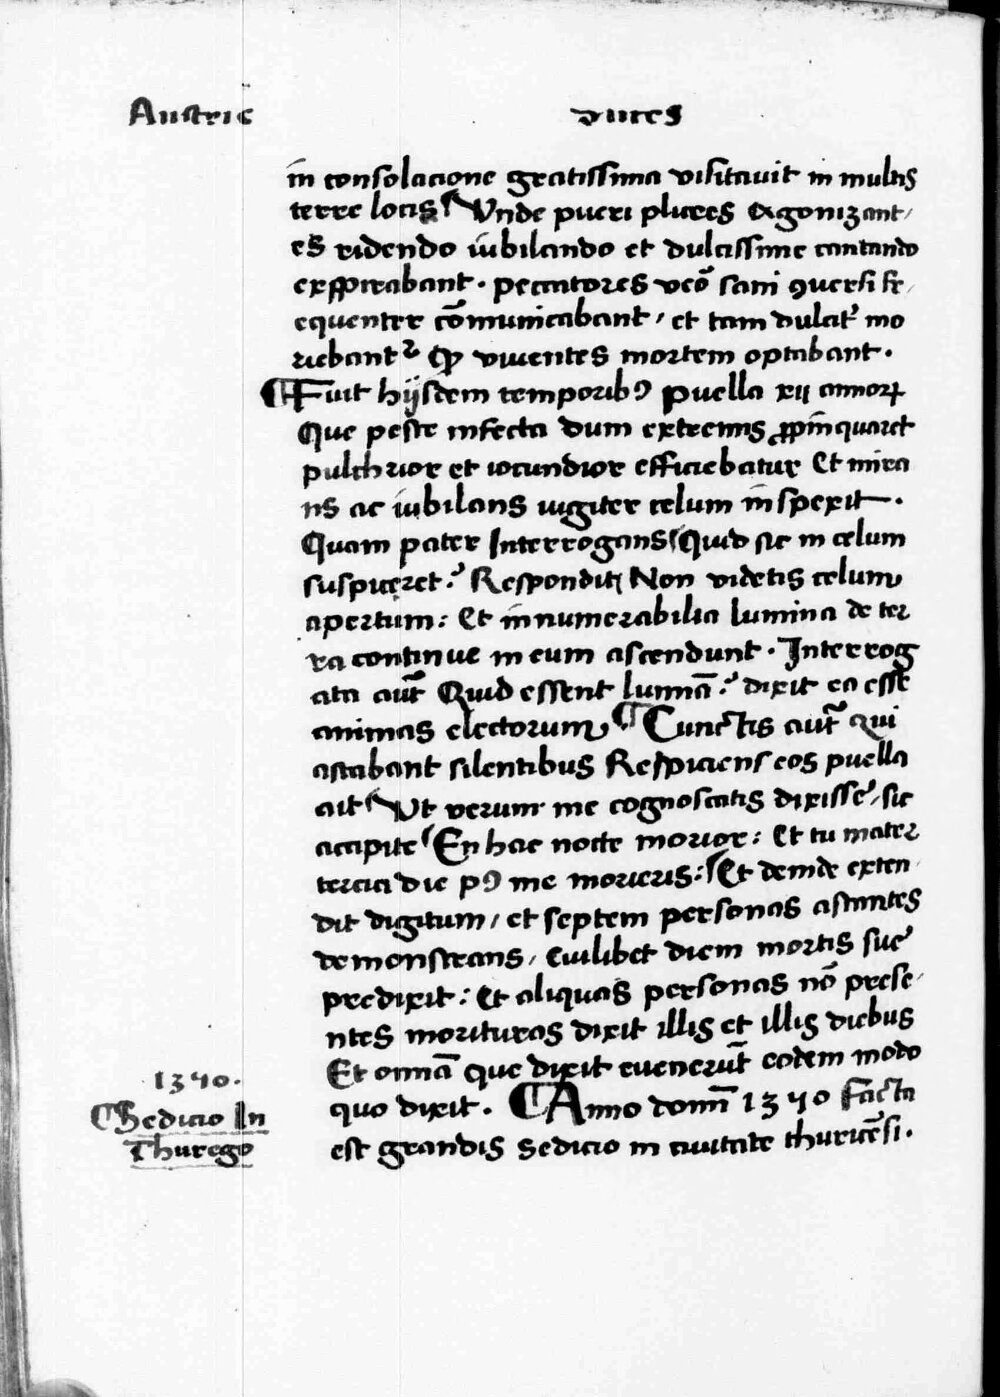 Austrie duces
in consolacione gratissima visitavit in multis
terre locis Vnde pueri plures Agonizant,
es ridendo iubilando et dulcissime cantando
exspirabant. peccatores veō sani ꝯuersi fr,
equenter cōmunicabant, et tam dulcit᷑ mo
riebant᷑ Qꝫ viventes mortem optabant.
¶ Fuit hijsdem temporibꝰ puella xii annorꝝ
Que peste infecta dum extremis ꝓpīnquaret
pulchrior et iocundior efficiebatur Et mira
ns ac iubilans iugiter celum īnspexit.
Quam pater Interrogans Quid sic in celum
suspiceret? Respondit Non videtis celum
apertum: Et īnnumerabilia lumina de ter
ra continue in eum ascendunt. Interrog
ata aut̄ Quid essent lumīa? dixit ea esse
animas electorum ¶ Cunctis aut̄ qui
astabant silentibus Respiciens eos puella
ait Vt verum me cognoscatis dixisse, sic
accipite En hac nocte morior: Et tu mater
tercia die pꝰ me morieris: Et deinde exten
dit digitum, et septem personas astantes
demonstrans, Cuilibet diem mortis sue
predixit: Et aliquas personas nō prese,
ntes morituras dixit illis et illis diebus
Et omīa que dixit evenerūt eodem modo
quo dixit. ¶ Anno domī 1340 facta
est grandis sedicio in civitate thuricēsi.
1340.
¶ Sedicio In
Thurego